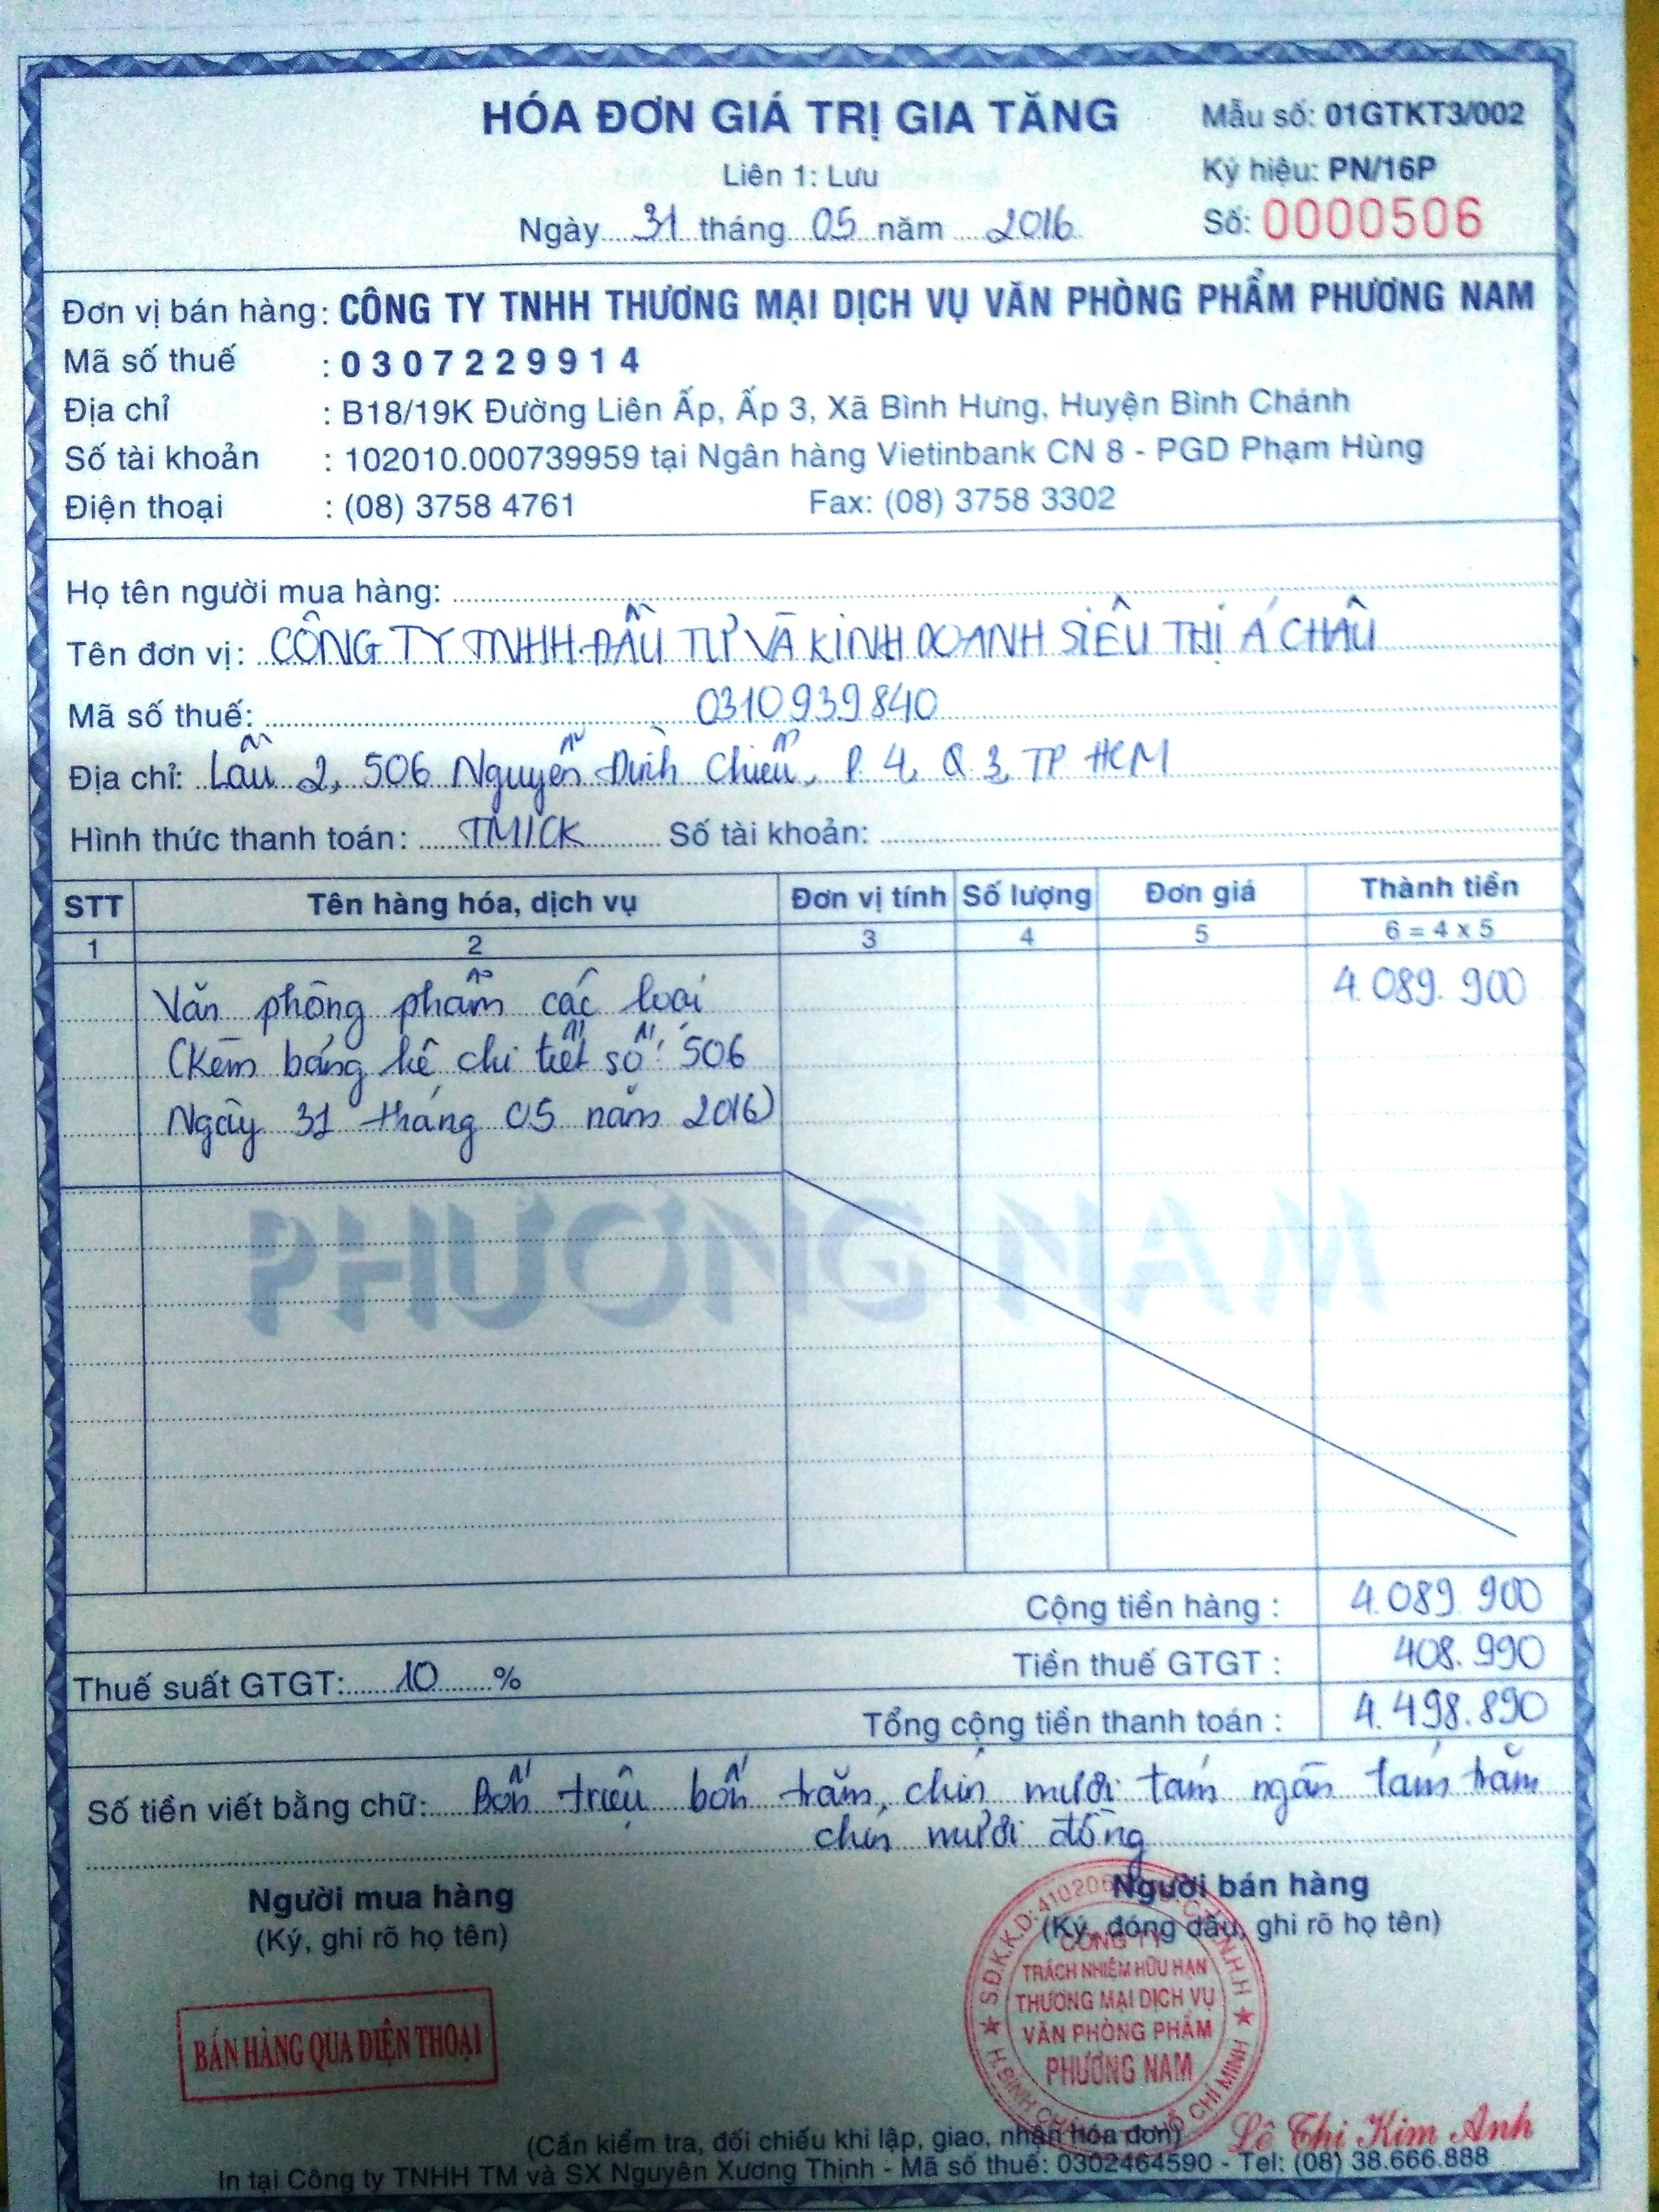 HÓA ĐƠN GIÁ TRỊ GIA TĂNG
Mẫu số: 01GTKT3/002
Liên 1: Lưu
Ký hiệu: PN/16P
Ngày 31 tháng 05 năm 2016
Số: 0000506
Đơn vị bán hàng: CÔNG TY TNHH THƯƠNG MẠI DỊCH VỤ VĂN PHÒNG PHẨM PHƯƠNG NAM
Mã số thuế : 0307229914
Địa chỉ : B18/19K Đường Liên Ấp, Ấp 3, Xã Bình Hưng, Huyện Bình Chánh
Số tài khoản : 102010.000739959 tại Ngân hàng Vietinbank CN 8 - PGD Phạm Hùng
Điện thoại : (08) 3758 4761 Fax: (08) 3758 3302
Họ tên người mua hàng:
Tên đơn vị: CÔNG TY TNHH ĐẦU TƯ VÀ KINH DOANH SIÊU THỊ Á CHÂU
Mã số thuế: 0310939840
Địa chỉ: Lầu 2, 506 Nguyễn Đình Chiểu, P. 4, Q. 3, TP HCM
Hình thức thanh toán: TM/CK Số tài khoản:
STT Tên hàng hóa, dịch vụ Đơn vị tính Số lượng Đơn giá Thành tiền
1 2 3 4 5 6 = 4 x 5
Văn phòng phẩm các loại 4.089.900
(Kèm bảng kê chi tiết số: 506
Ngày 31 tháng 05 năm 2016)
PHƯƠNG NAM
Cộng tiền hàng : 4.089.900
Thuế suất GTGT: 10 % Tiền thuế GTGT : 408.990
Tổng cộng tiền thanh toán : 4.498.890
Số tiền viết bằng chữ: Bốn triệu bốn trăm, chín mươi tám ngàn tám trăm
chín mươi đồng
Người mua hàng
(Ký, ghi rõ họ tên)
Người bán hàng
(Ký, đóng dấu, ghi rõ họ tên)
BÁN HÀNG QUA ĐIỆN THOẠI
CÔNG TY
TRÁCH NHIỆM HỮU HẠN
THƯƠNG MẠI DỊCH VỤ
VĂN PHÒNG PHẨM
PHƯƠNG NAM
Lê Thị Kim Anh
(Cần kiểm tra, đối chiếu khi lập, giao, nhận hóa đơn)
In tại Công ty TNHH TM và SX Nguyên Xương Thịnh - Mã số thuế: 0302464590 - Tel: (08) 38.666.888